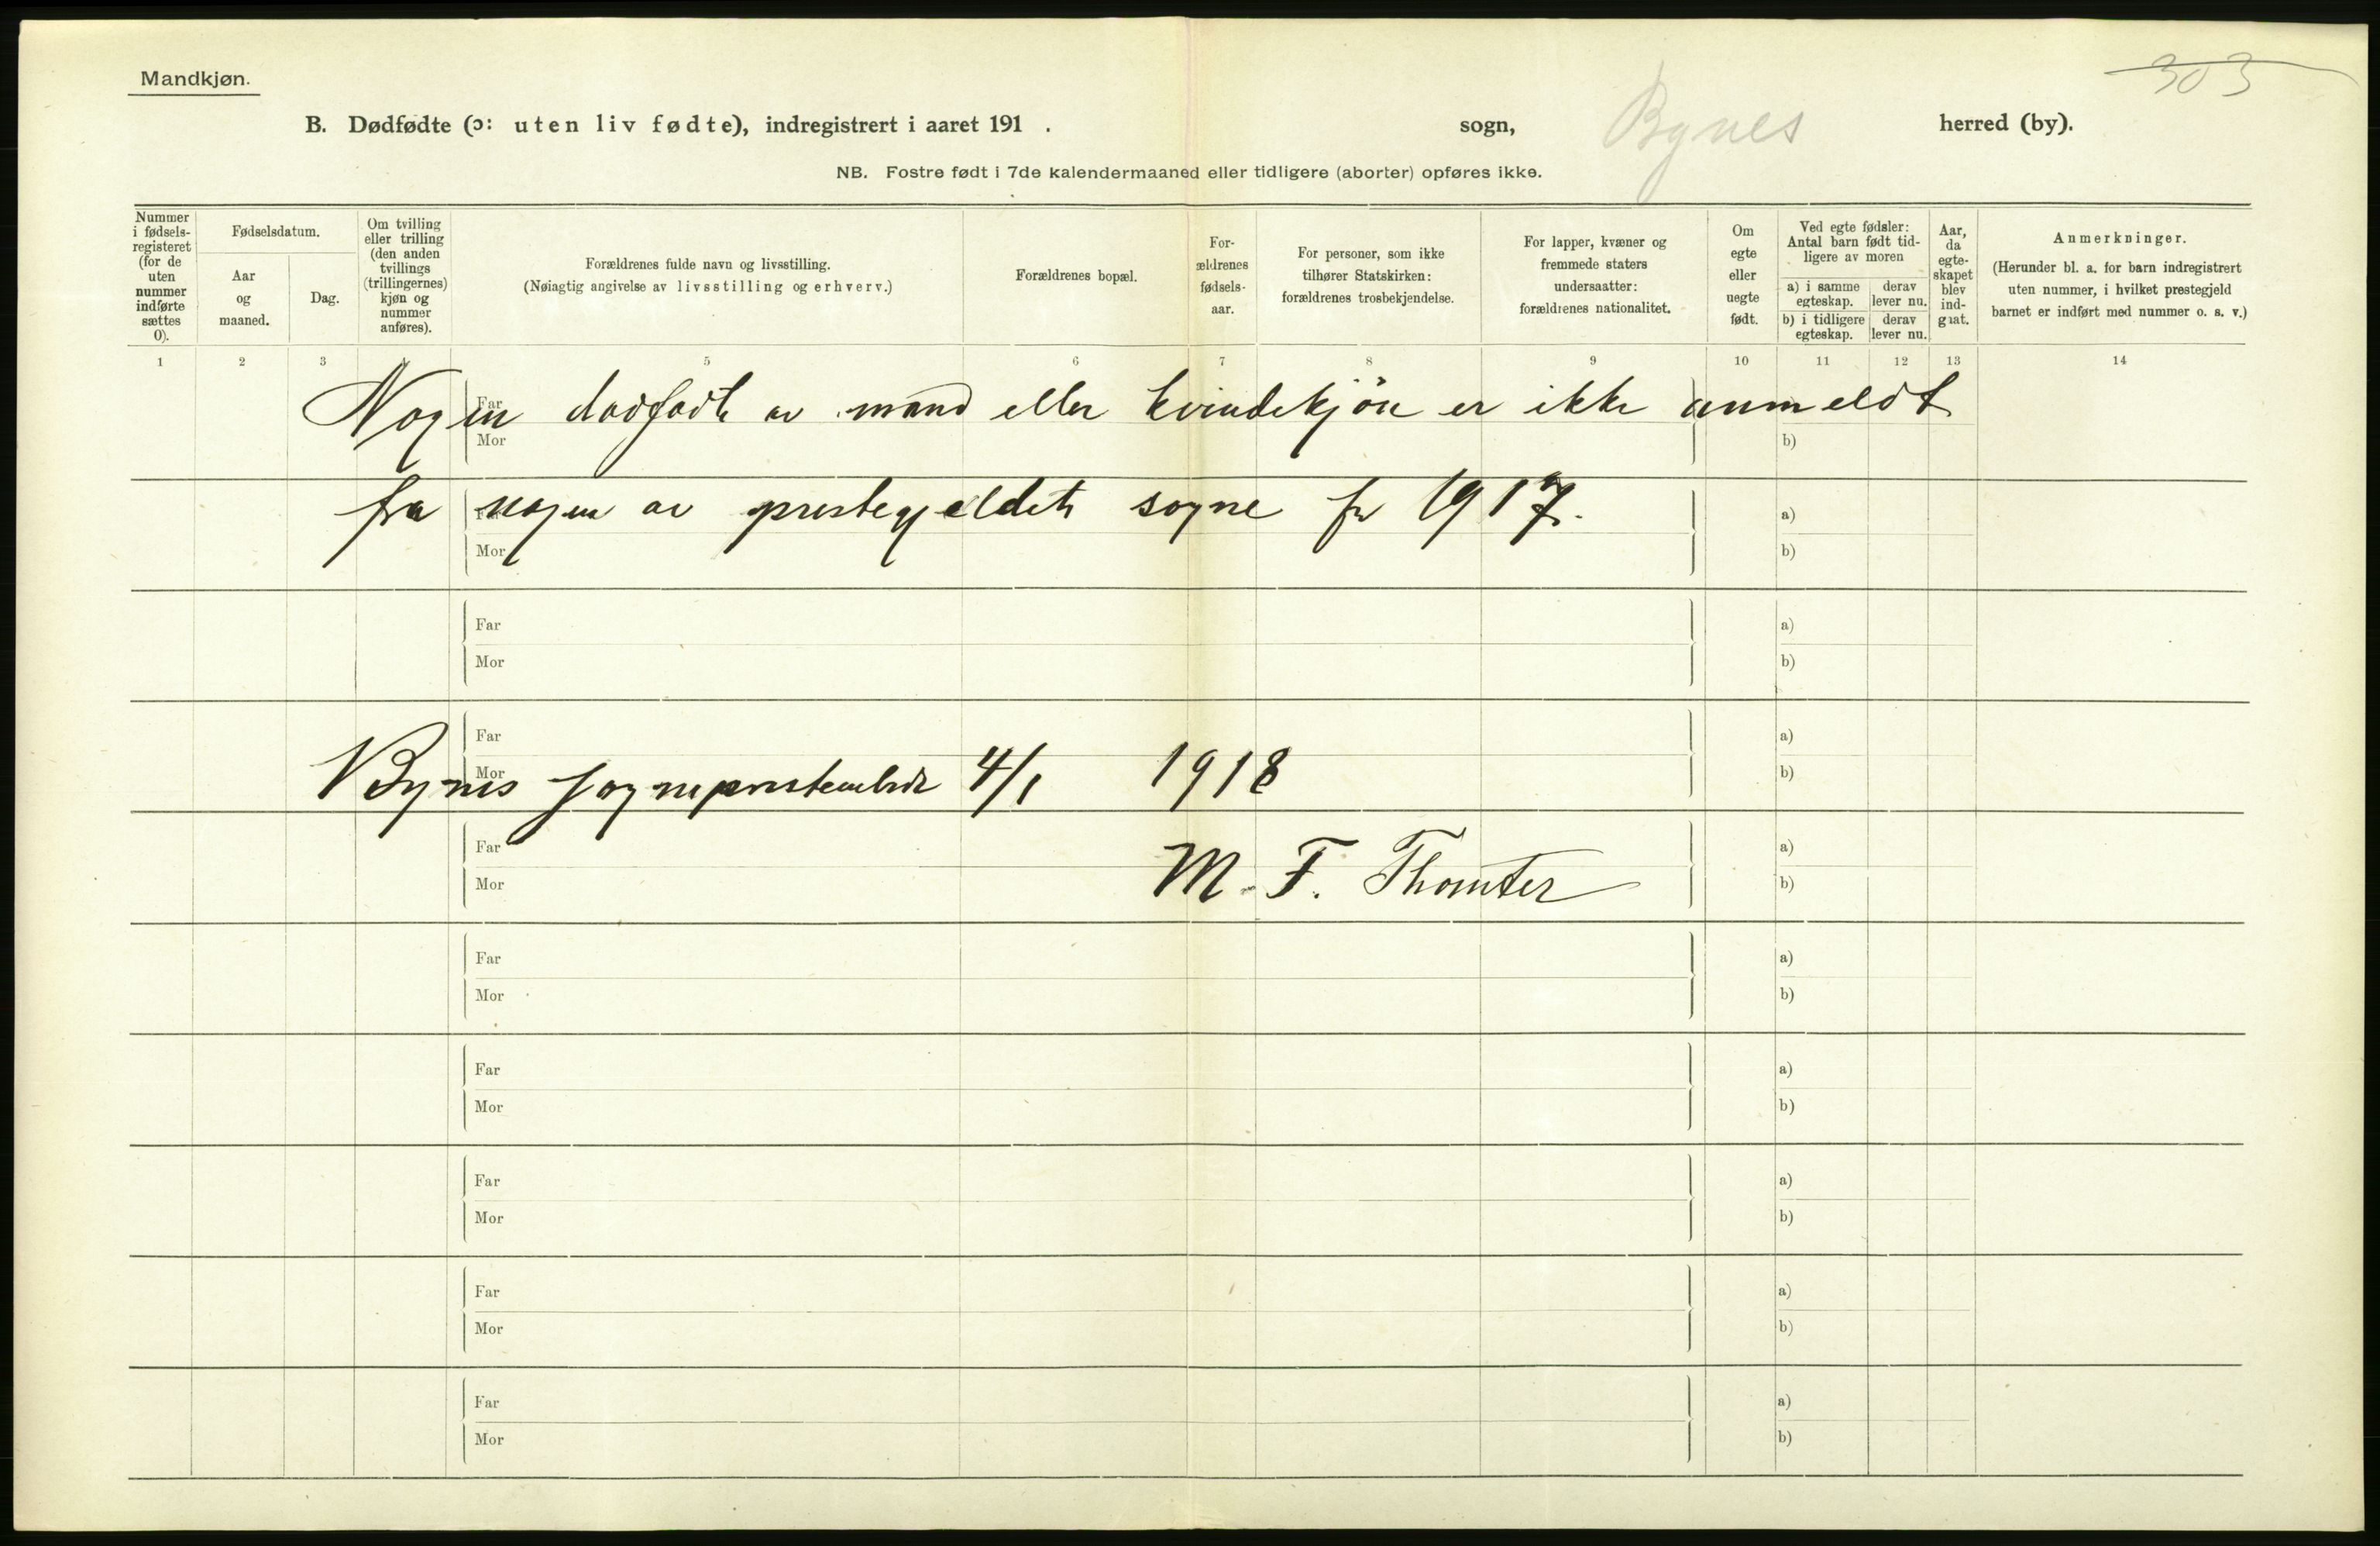 Mandkjøn.
303
B. Dødfødte (ɔ: uten liv fødte), indregistrert i aaret 191 . sogn, Bynes herred (by).
NB. Fostre født i 7de kalendermaaned eller tidligere (aborter) opføres ikke.
Nummer i fødsels-registeret (for de uten nummer indførte sættes 0).
Fødselsdatum.
Aar og maaned.
Dag.
Om tvilling eller trilling (den anden tvillings (trillingernes) kjøn og nummer anføres).
Forældrenes fulde navn og livsstilling.
(Nøiagtig angivelse av livsstilling og erhverv.)
Forældrenes bopæl.
For-ældrenes fødsels-aar.
For personer, som ikke tilhører Statskirken: forældrenes trosbekjendelse.
For lapper, kvæner og fremmede staters undersaatter: forældrenes nationalitet.
Om egte eller uegte født.
Ved egte fødsler: Antal barn født tid-ligere av moren
a) i samme egteskap.
derav lever nu.
b) i tidligere egteskap.
derav lever nu.
Aar, da egte-skapet blev ind-gaat.
Anmerkninger.
(Herunder bl. a. for barn indregistrert uten nummer, i hvilket prestegjeld barnet er indført med nummer o. s. v.)
1 2 3 5 6 7 8 9 10 11 12 13 14
Far
Nogen dødfødte av mand eller kvindekjön er ikke anmeldt
Mor b)
fra nogen av prestegjeldets sogne for 1917. a)
Mor b)
Far a)
Mor b)
Far a)
Mor b)
Bynes sogneprestembede 4/1 1918
Far a)
M. F. Thomter
Mor b)
Far a)
Mor b)
Far a)
Mor b)
Far a)
Mor b)
Far a)
Mor b)
Far a)
Mor b)